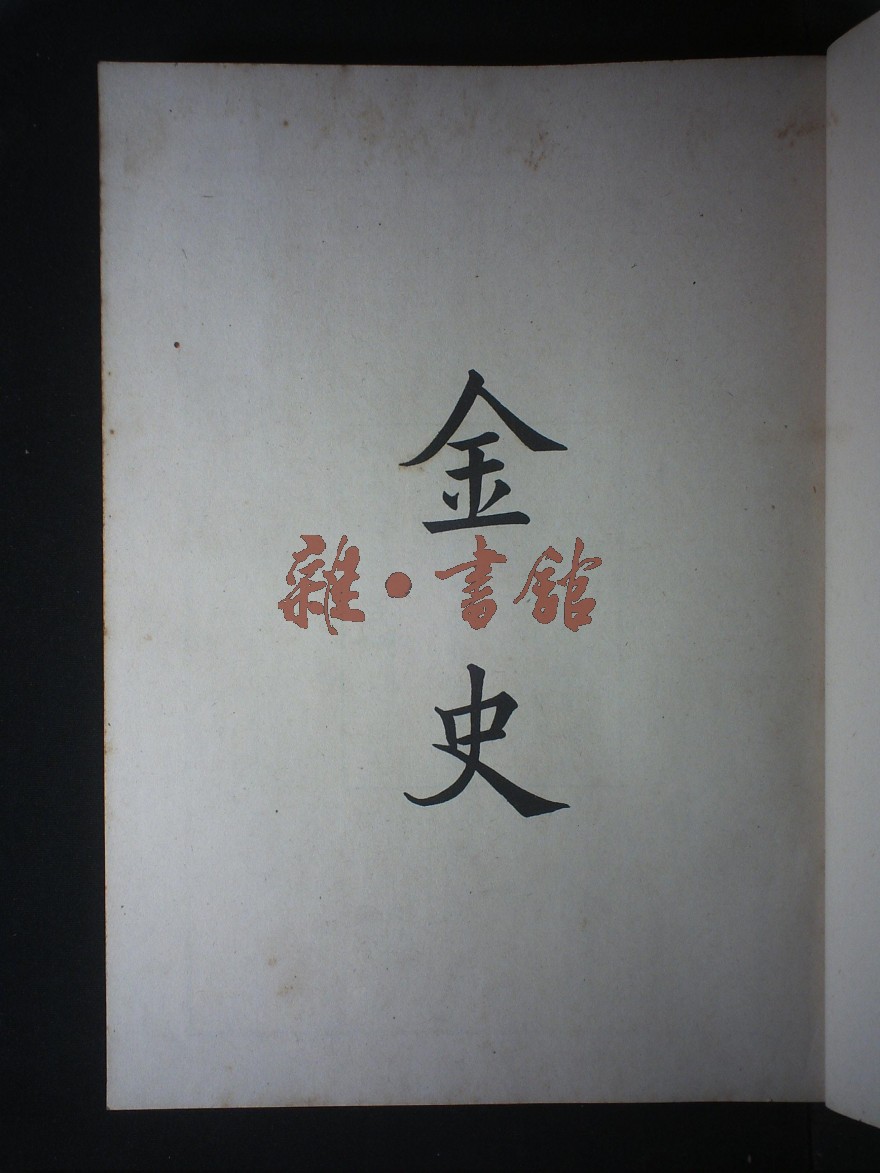 金史
雜·書館